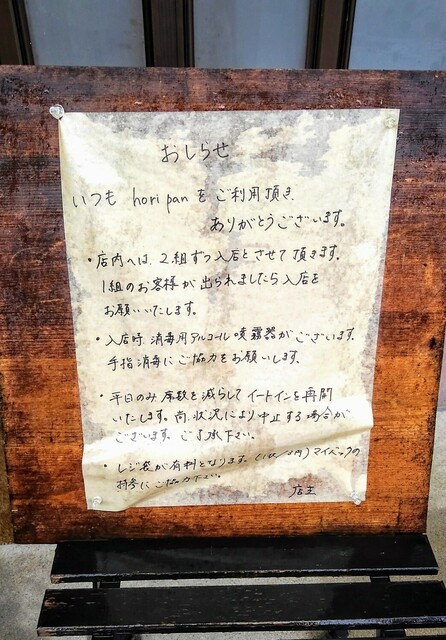 おしらせ
いつも hori pan をご利用頂き
ありがとうございます。
・店内へは、2組ずつ入店とさせて頂きます。
1組のお客様が出られましたら入店を
お願いいたします。
・入店時、消毒用アルコール噴霧器がございます。
手指消毒にご協力をお願いします。
・平日のみ席数を減らしてイートインを再開
いたします。尚、状況により中止する場合が
ございます。ご了承下さい。
・レジ袋が有料となります。マイバックの
持参にご協力下さい。
店主